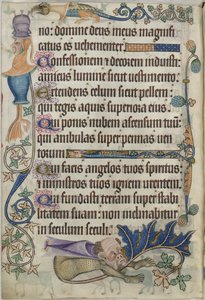 no: domine deus meus magnifi
catus es uehementer
Confessionem ⁊ decorem induisti
amictus lumine sicut uestimento
Extendens celum sicut pellem
qui tegis aquis superiora eius
Qui ponis nubem ascensum tuū
qui ambulas super pennas uen
torum
Qui facis angelos tuos spiritus
⁊ ministros tuos ignem urentem
Qui fundasti terram super stabi
litatem suam: non inclinabitur
in seculum seculi